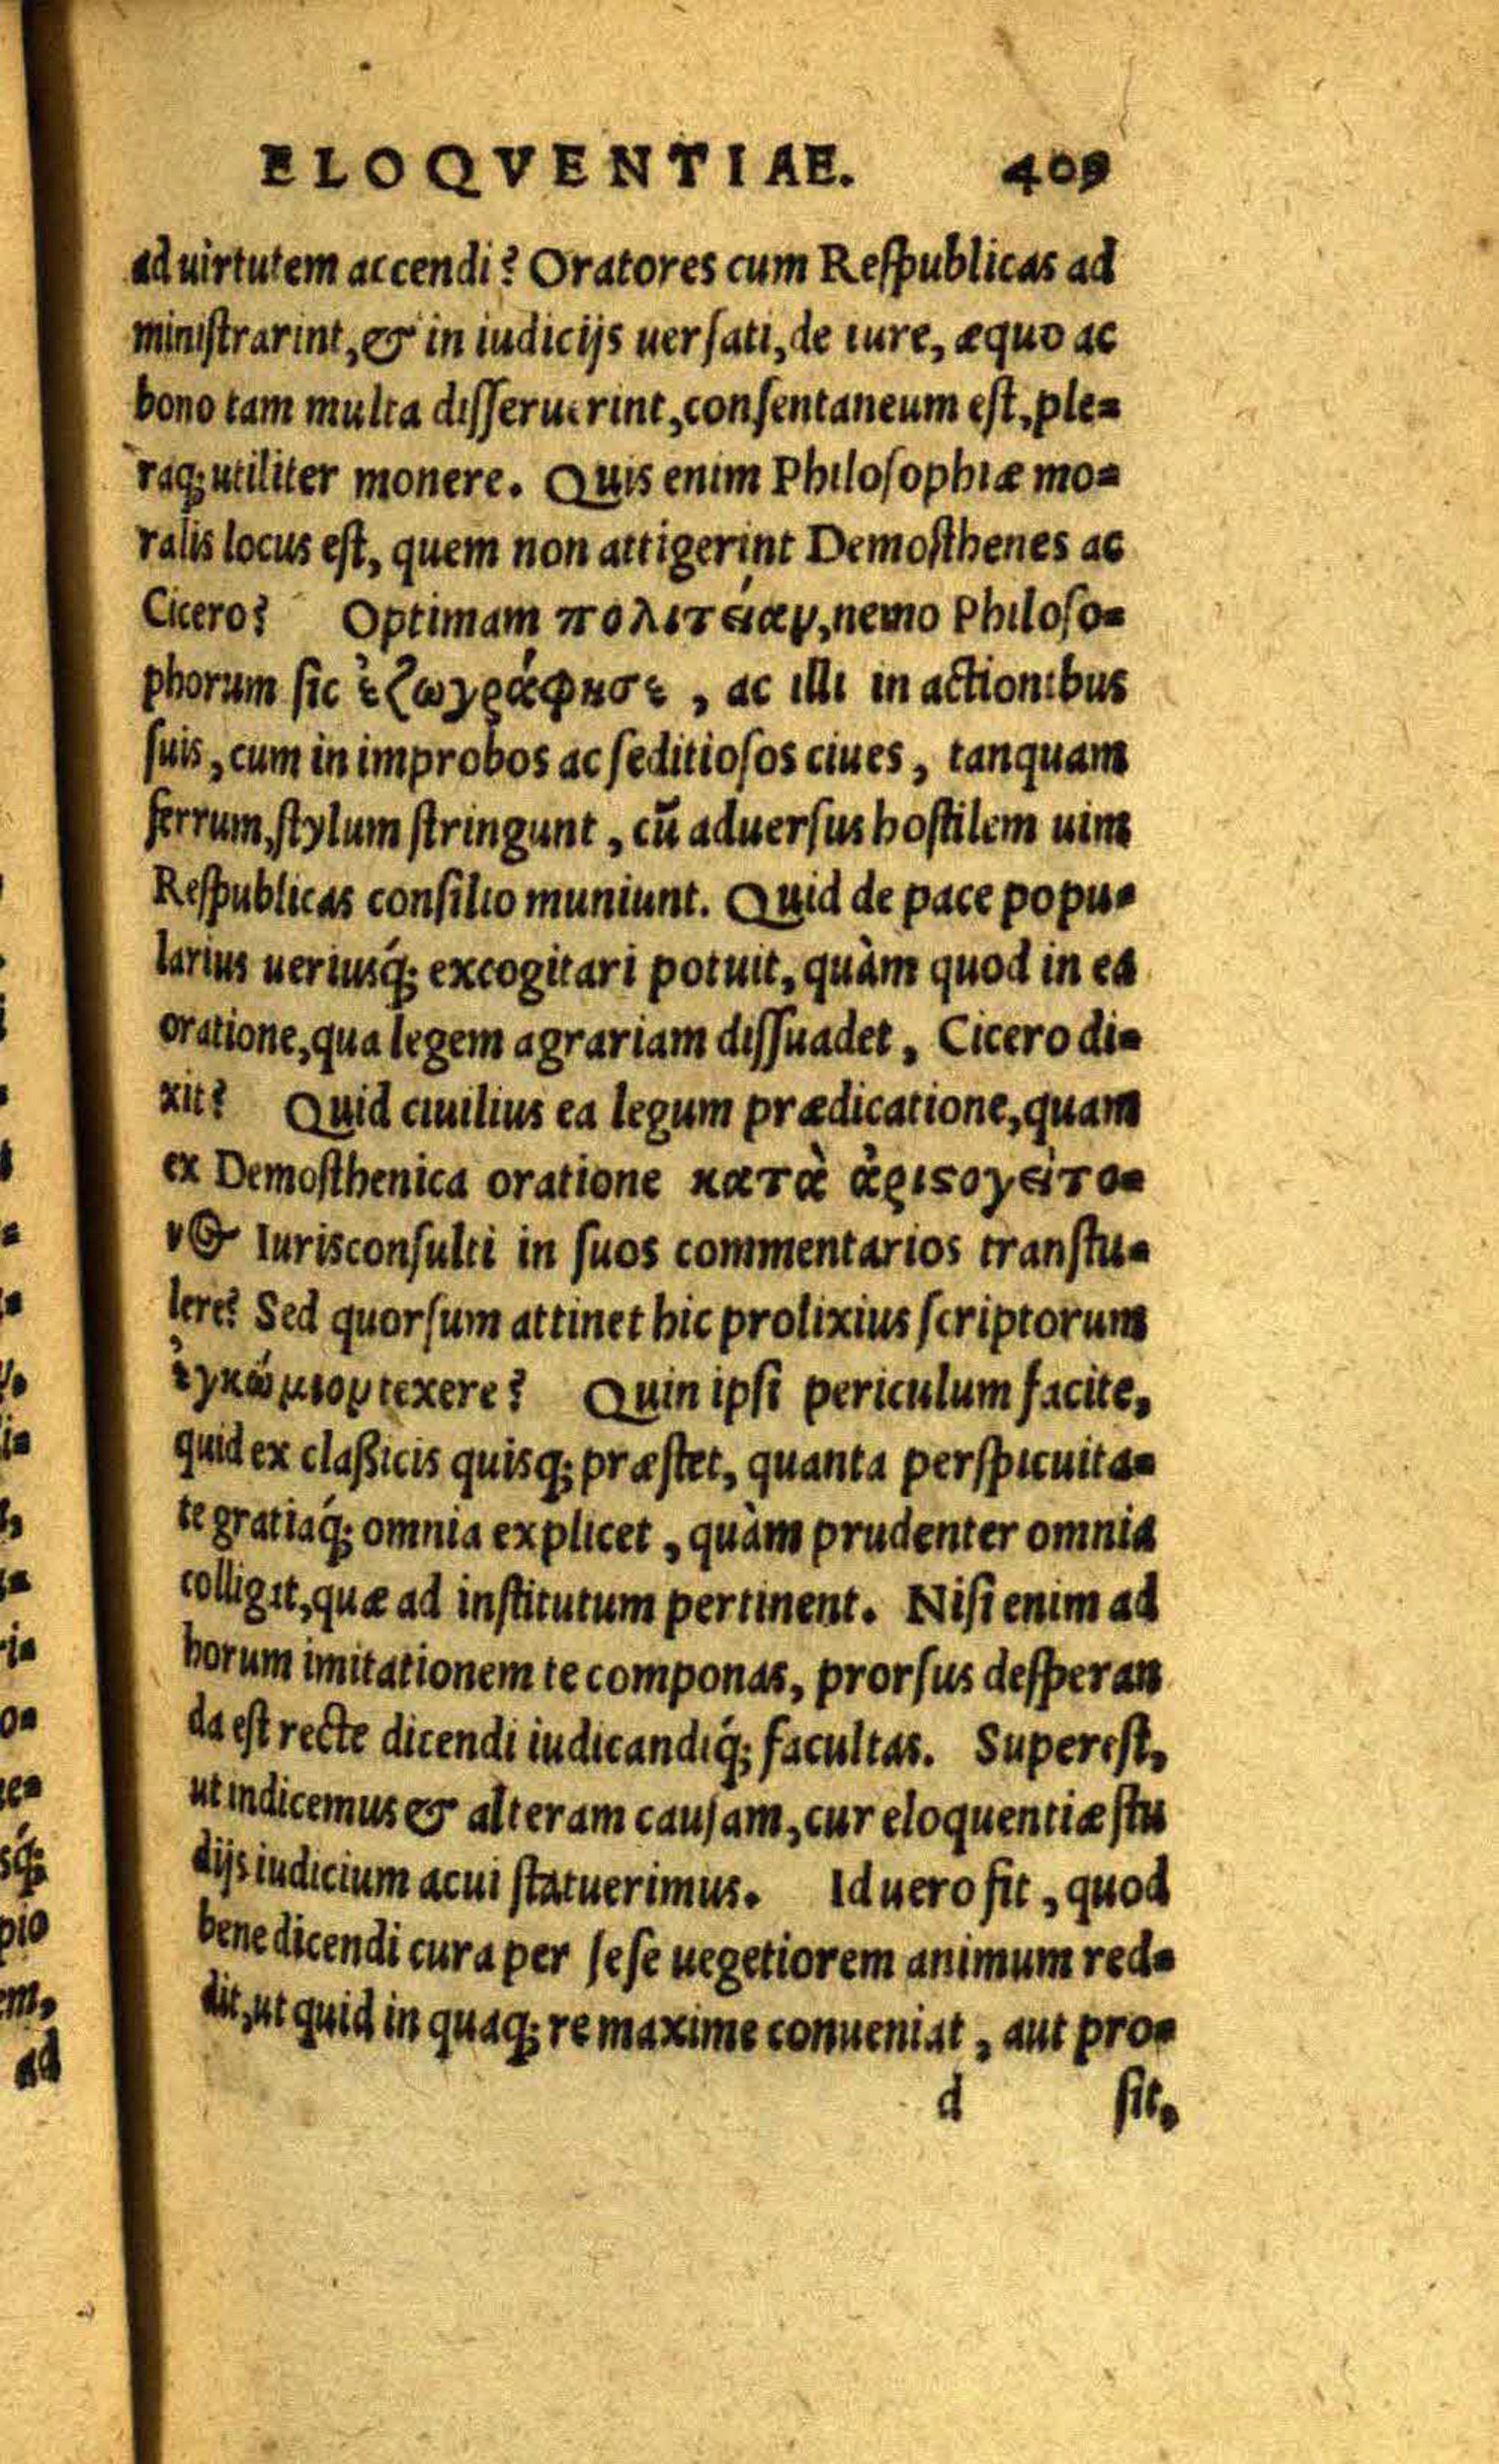 ELOQVENTIAE. 409
ad uirtutem accendi? Oratores cum Respublicas ad
ministrarint, & in iudicijs uersati, de iure, æquo ac
bono tam multa disseruerint, consentaneum est, ple-
raq; utiliter monere. Quis enim Philosophiæ mo-
ralis locus est, quem non attigerint Demosthenes ac
Cicero? Optimam πολιτείαν, nemo Philoso-
phorum sic ἐζωγράφησε, ac illi in actionibus
suis, cum in improbos ac seditiosos ciues, tanquam
ferrum, stylum stringunt, cū aduersus hostilem uim
Respublicas consilio muniunt. Quid de pace popu-
larius ueriusq́; excogitari potuit, quàm quod in ea
oratione, qua legem agrariam dissuadet, Cicero di-
xit? Quid ciuilius ea legum prædicatione, quam
ex Demosthenica oratione κατὰ ἀριστογείτο-
νος Iurisconsulti in suos commentarios transtu-
lere? Sed quorsum attinet hic prolixius scriptorum
ἐγκώμιον texere? Quin ipsi periculum facite,
quid ex claßicis quisq; præstet, quanta perspicuita-
te gratiaq́; omnia explicet, quàm prudenter omnia
colligat, quæ ad institutum pertinent. Nisi enim ad
horum imitationem te componas, prorsus desperan
da est recte dicendi iudicandiq́; facultas. Superest,
ut indicemus & alteram causam, cur eloquentiæ stu
dijs iudicium acui statuerimus. Id uero fit, quod
bene dicendi cura per sese uegetiorem animum red-
dit, ut quid in quaq; re maxime conueniat, aut pro-
d sit,